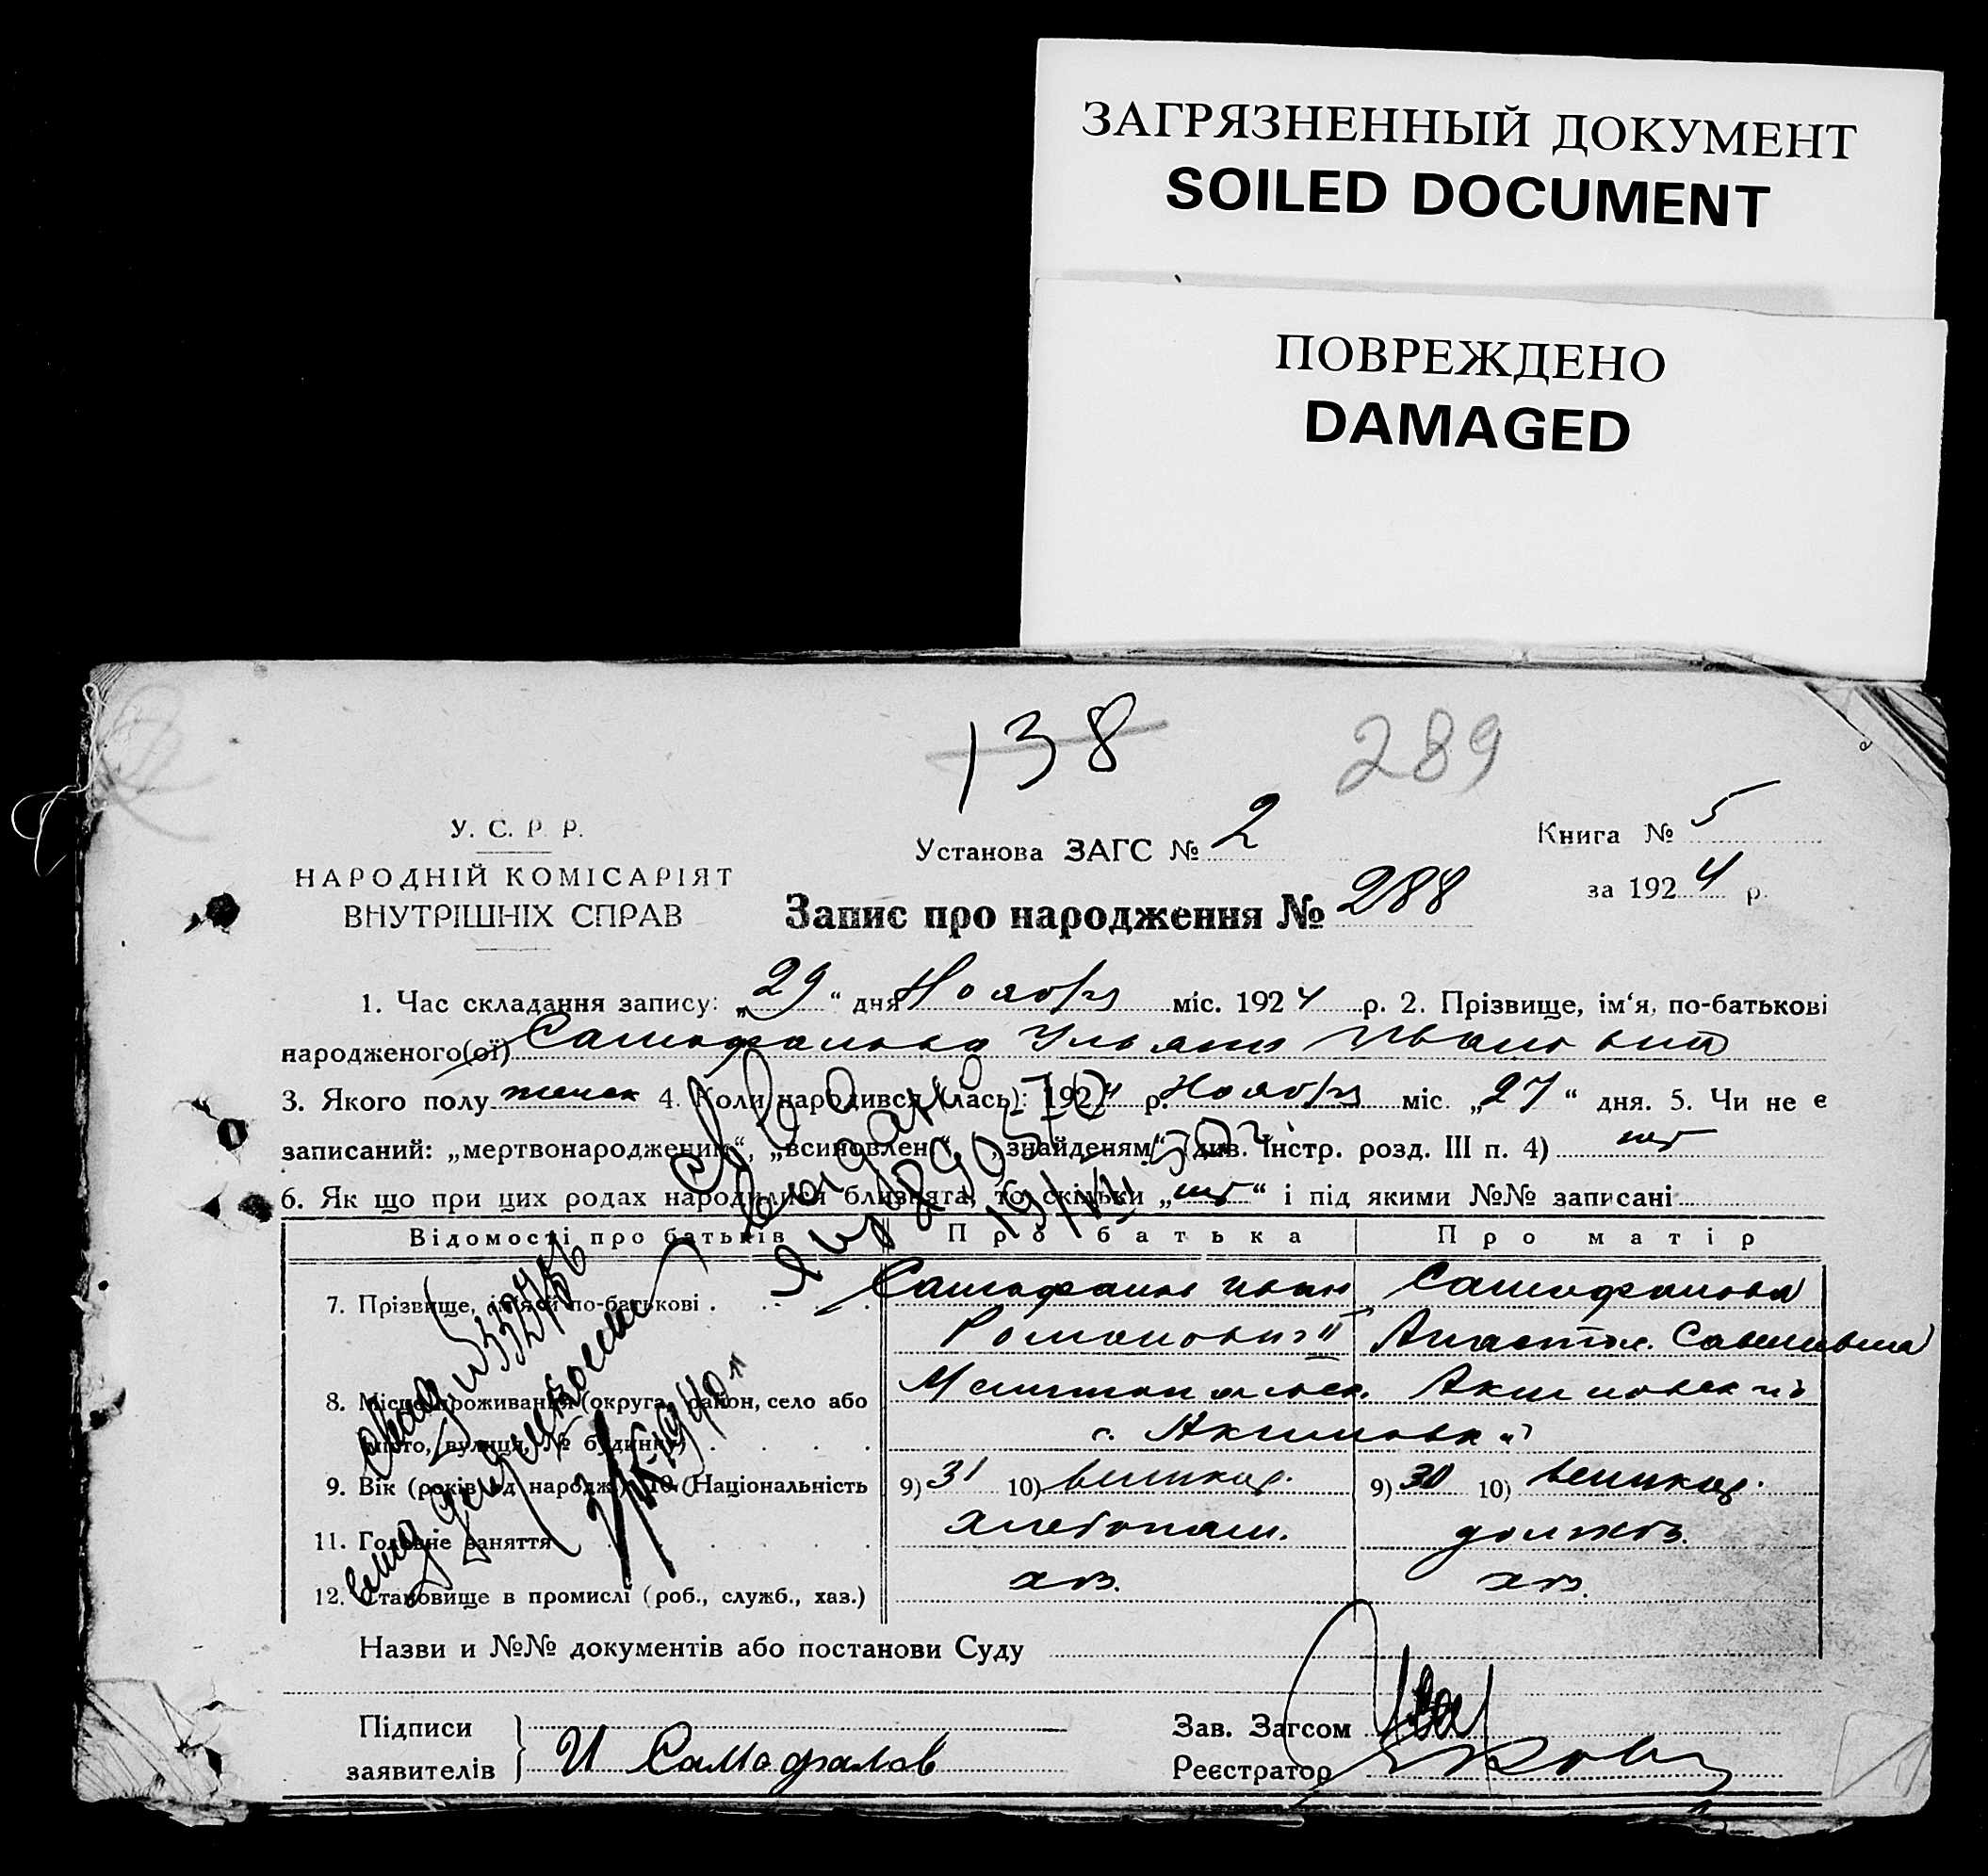 ЗАГРЯЗНЕННЫЙ ДОКУМЕНТ
SOILED DOCUMENT
ПОВРЕЖДЕНО
DAMAGED
138 289
У. С. Р. Р.
НАРОДНІЙ КОМІСАРІЯТ
ВНУТРІШНІХ СПРАВ
Установа ЗАГС № 2
Книга № 5
за 1924 р.
Запис про народження № 288
1. Час складання запису: „29“ дня Ноября міс. 1924 р. 2. Прізвище, ім‘я, по-батькові
народженого(ої) Самофалова Ульяна Ивановна
3. Якого полу женск 4. Коли народився (лась): 1924 р. Ноября міс. „27“ дня. 5. Чи не є
записаний: „мертвонародженим“, „всиновлен“, „знайденям“ (див. Інстр. розд. III п. 4) нет
6. Як що при цих родах народилися близнята, то скільки „нет“ і під якими №№ записані
Відомості про батьків Про батька Про матір
7. Прізвище, ім‘я й по-батькові Самофалов Иван Самофалова
Романович Анастас. Савельевна
8. Місце проживання (округа, район, село або Мелитопольск. Акимовск
місто, вулиця, № будинку) с. Акимовка
9. Вік (років від народж.) 10. Національність 9) 31 10) великор. 9) 30 10) великор.
11. Головне заняття хлебопаш. домохоз.
12. Становище в промислі (роб., служб., хаз.) хоз. хоз.
Назви и №№ документів або постанови Суду
Підписи
заявителів И Самофалов
Зав. Загсом
Реєстратор